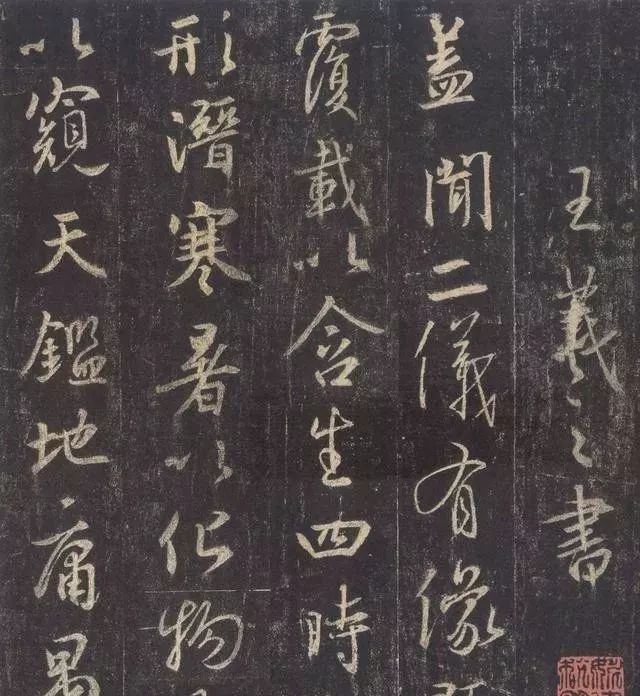 王羲之書
蓋聞二儀有像
覆載以含生四時
形潛寒暑以化物
以窺天鑑地庸愚